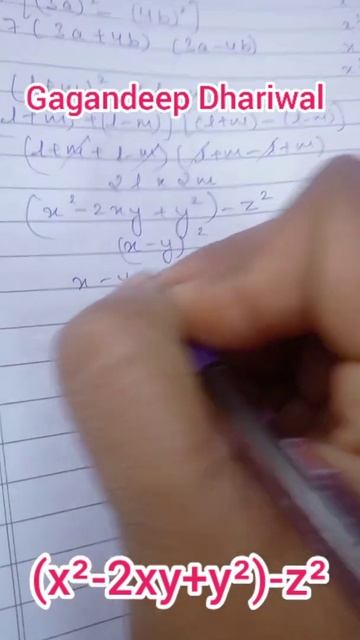 (3a)² - (4b)²]
7 (3a+4b) (3a-4b)
Gagandeep Dhariwal
(l+m + l-m) (l+m-l+m)
2l × 2m
(x² - 2xy + y²) - z²
(x-y)²
x - y
(x²-2xy+y²)-z²